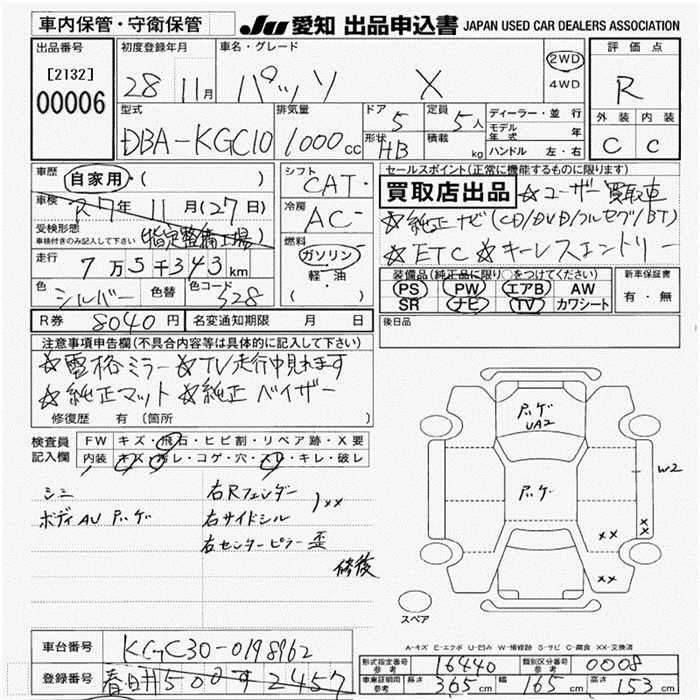 車内保管・守衛保管 JU 愛知 出品申込書 JAPAN USED CAR DEALERS ASSOCIATION
出品番号 初度登録年月 車名・グレード 評価点
[2132] 28年11月 パッソ X 2WD R
00006 4WD
型式 排気量 ドア 5 定員 5人 ディーラー・並行 外装 内装
DBA-KGC10 1000cc 形状 HB 積載 kg モデル年式 年 C C
ハンドル 左・右
車歴 自家用・( ) シフト CAT・ セールスポイント(正常に機能するものに限ります)
買取店出品 ☆ユーザー買取車
車検 R7年11月(27日) 冷房 AC- ☆純正ナビ(CD/DVD/フルセグ/BT)
受検形態 車検付きのみ記入して下さい (指定整備工場) 燃料 ☆ETC ☆キーレスエントリー
走行 7万5千343km ガソリン 装備品(純正品に限り○をつけてください) 新車保証書
軽油 PS PW エアB AW 有・無
色 シルバー 色替 色コード S28 ( ) SR ナビ TV カワシート
R券 8040円 名変通知期限 月 日 後日品
注意事項申告欄(不具合内容等は具体的に記入して下さい)
☆電格ミラー ☆TV走行中見れます
☆純正マット ☆純正バイザー
修復歴 有 (箇所 )
検査員 FW キズ・飛石・ヒビ割・リペア跡・X要
記入欄 内装 キズ・汚レ・コゲ・穴・スレ・キレ・破レ
シミ 右Rフェンダー
ボディAU ハゲ 右サイドシル )××
右センターピラー 歪
修後
ハゲ
UA2
ハゲ
W2
××
××
××
スペア
A-キズ E-エクボ U-凹み W-補修跡 S-サビ C-腐食 XX-交換済
車台番号 KGC30-0198962 形式指定番号 参考 16440 類別区分番号 参考 0008
登録番号 春日井500す2457 車庫証明用 参考 長さ 365cm 幅 165cm 高さ 153cm